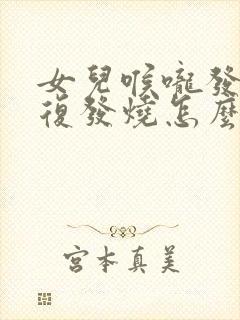 女兒喉嚨發
復發燒怎麼
宮本真美